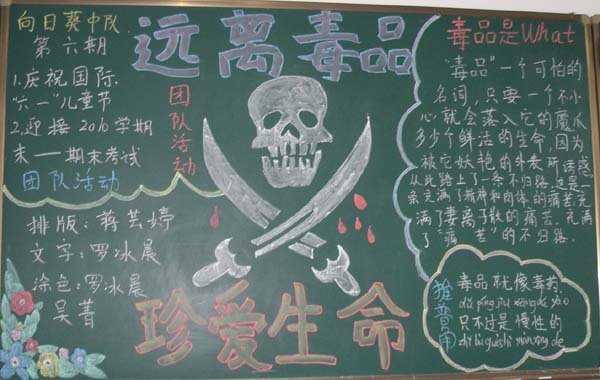 向日葵中队
第六期
1.庆祝国际
"六一"儿童节
2.迎接2010学期
末——期末考试
团队活动
排版:蒋芸婷
文字:罗冰晨
涂色:罗冰晨
吴菁
远离毒品
团队活动
珍爱生命
毒品是What
"毒品"一个可怕的
名词,只要一个不小
心,就会落入它的魔爪
多少个鲜活的生命,因为
被它妖艳的外表所诱惑
从此踏上了一条不归路,这是一
条充满了精神和肉体的痛苦,充
满了妻离子散的痛苦.充满
了"痛苦"的不归路.
推普周
毒品就像毒药
只不过是慢性的